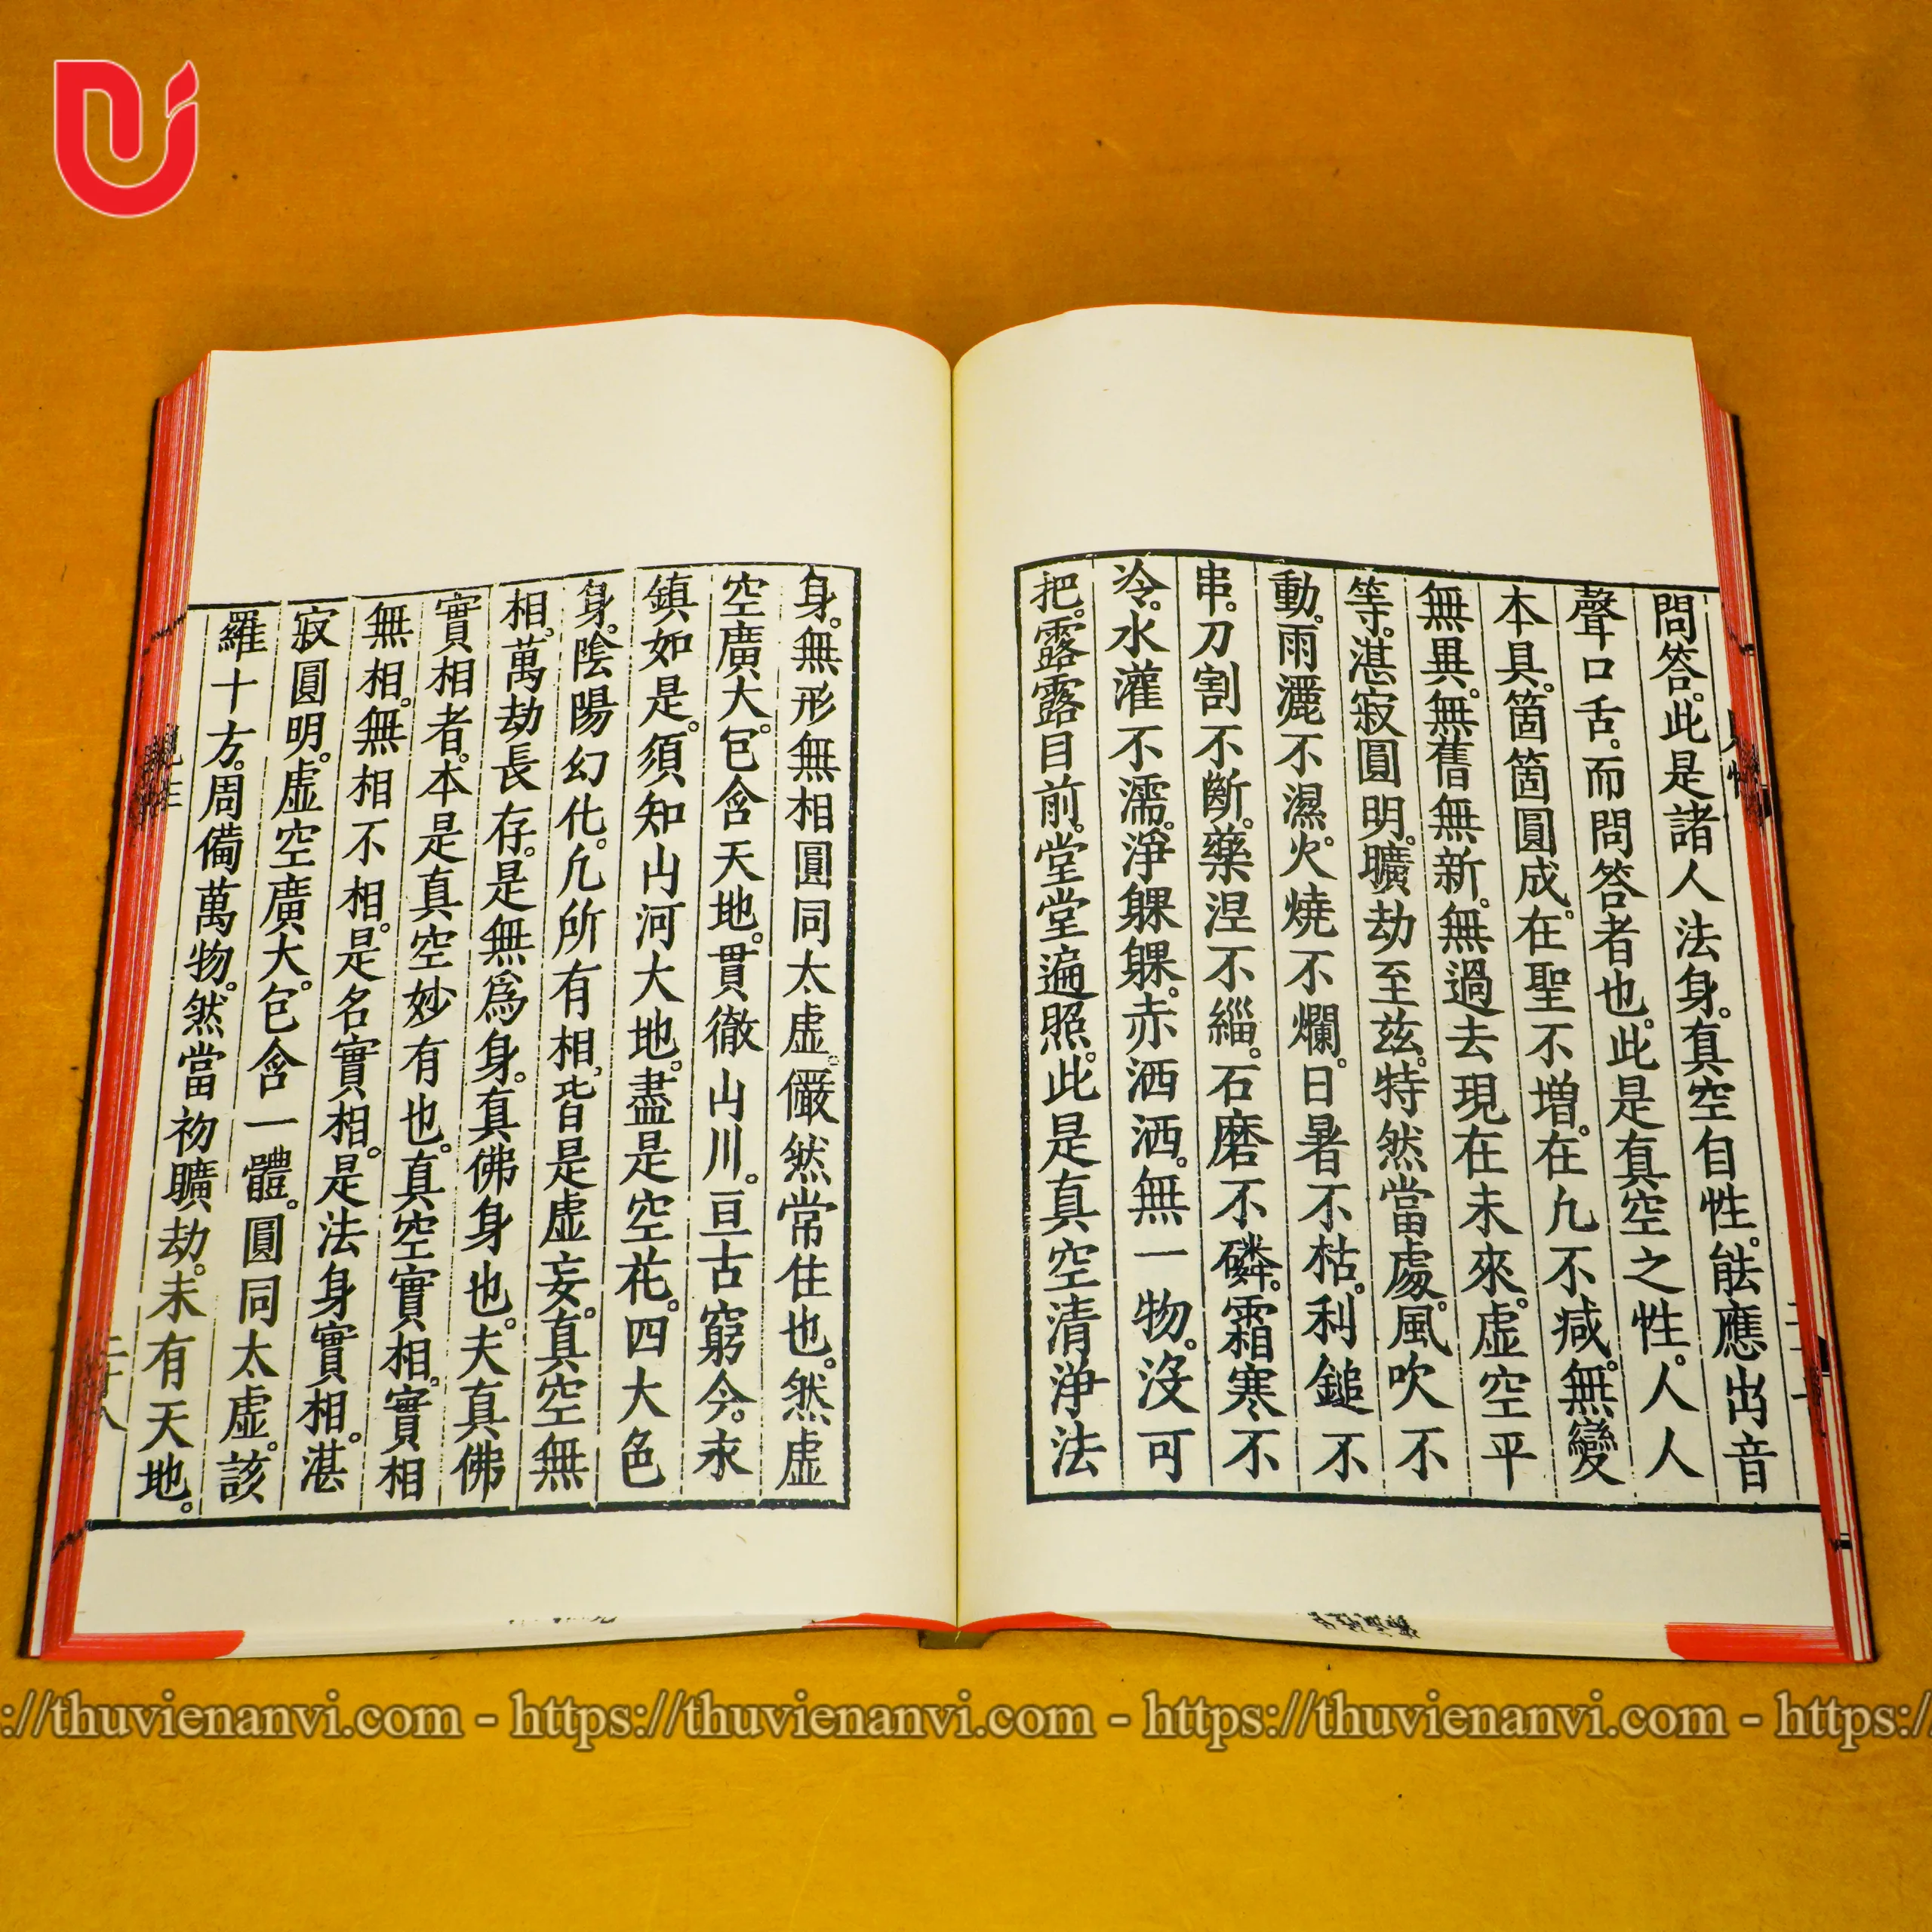 問答。此是諸人法身。真空自性。能應出音
聲口舌。而問答者也。此是真空之性。人人
本具。箇箇圓成。在聖不增。在凢不減。無變
無異。無舊無新。無過去現在未來。虛空平
等。湛寂圓明。曠劫至茲。特然當處。風吹不
動。雨灑不濕。火燒不爛。日暑不枯。利鎚不
串。刀割不斷。藥涅不緇。石磨不磷。霜寒不
冷。水灌不濡。淨躶躶。赤洒洒。無一物。沒可
把。露露目前。堂堂遍照。此是真空清淨法
身。無形無相圓同太虛。儼然常住也。然虛
空廣大。包含天地。貫徹山川。亘古窮今。永
鎮如是。須知山河大地。盡是空花。四大色
身。陰陽幻化。凢所有相。皆是虛妄。真空無
相。萬劫長存。是無為身。真佛身也。夫真佛
實相者。本是真空妙有也。真空實相。實相
無相。無相不相。是名實相。是法身實相。湛
寂圓明。虛空廣大。包含一體。圓同太虛。該
羅十方。周備萬物。然當初曠劫。未有天地。
://thuvienanvi.com - https://thuvienanvi.com - https://thuvienanvi.com - https:/